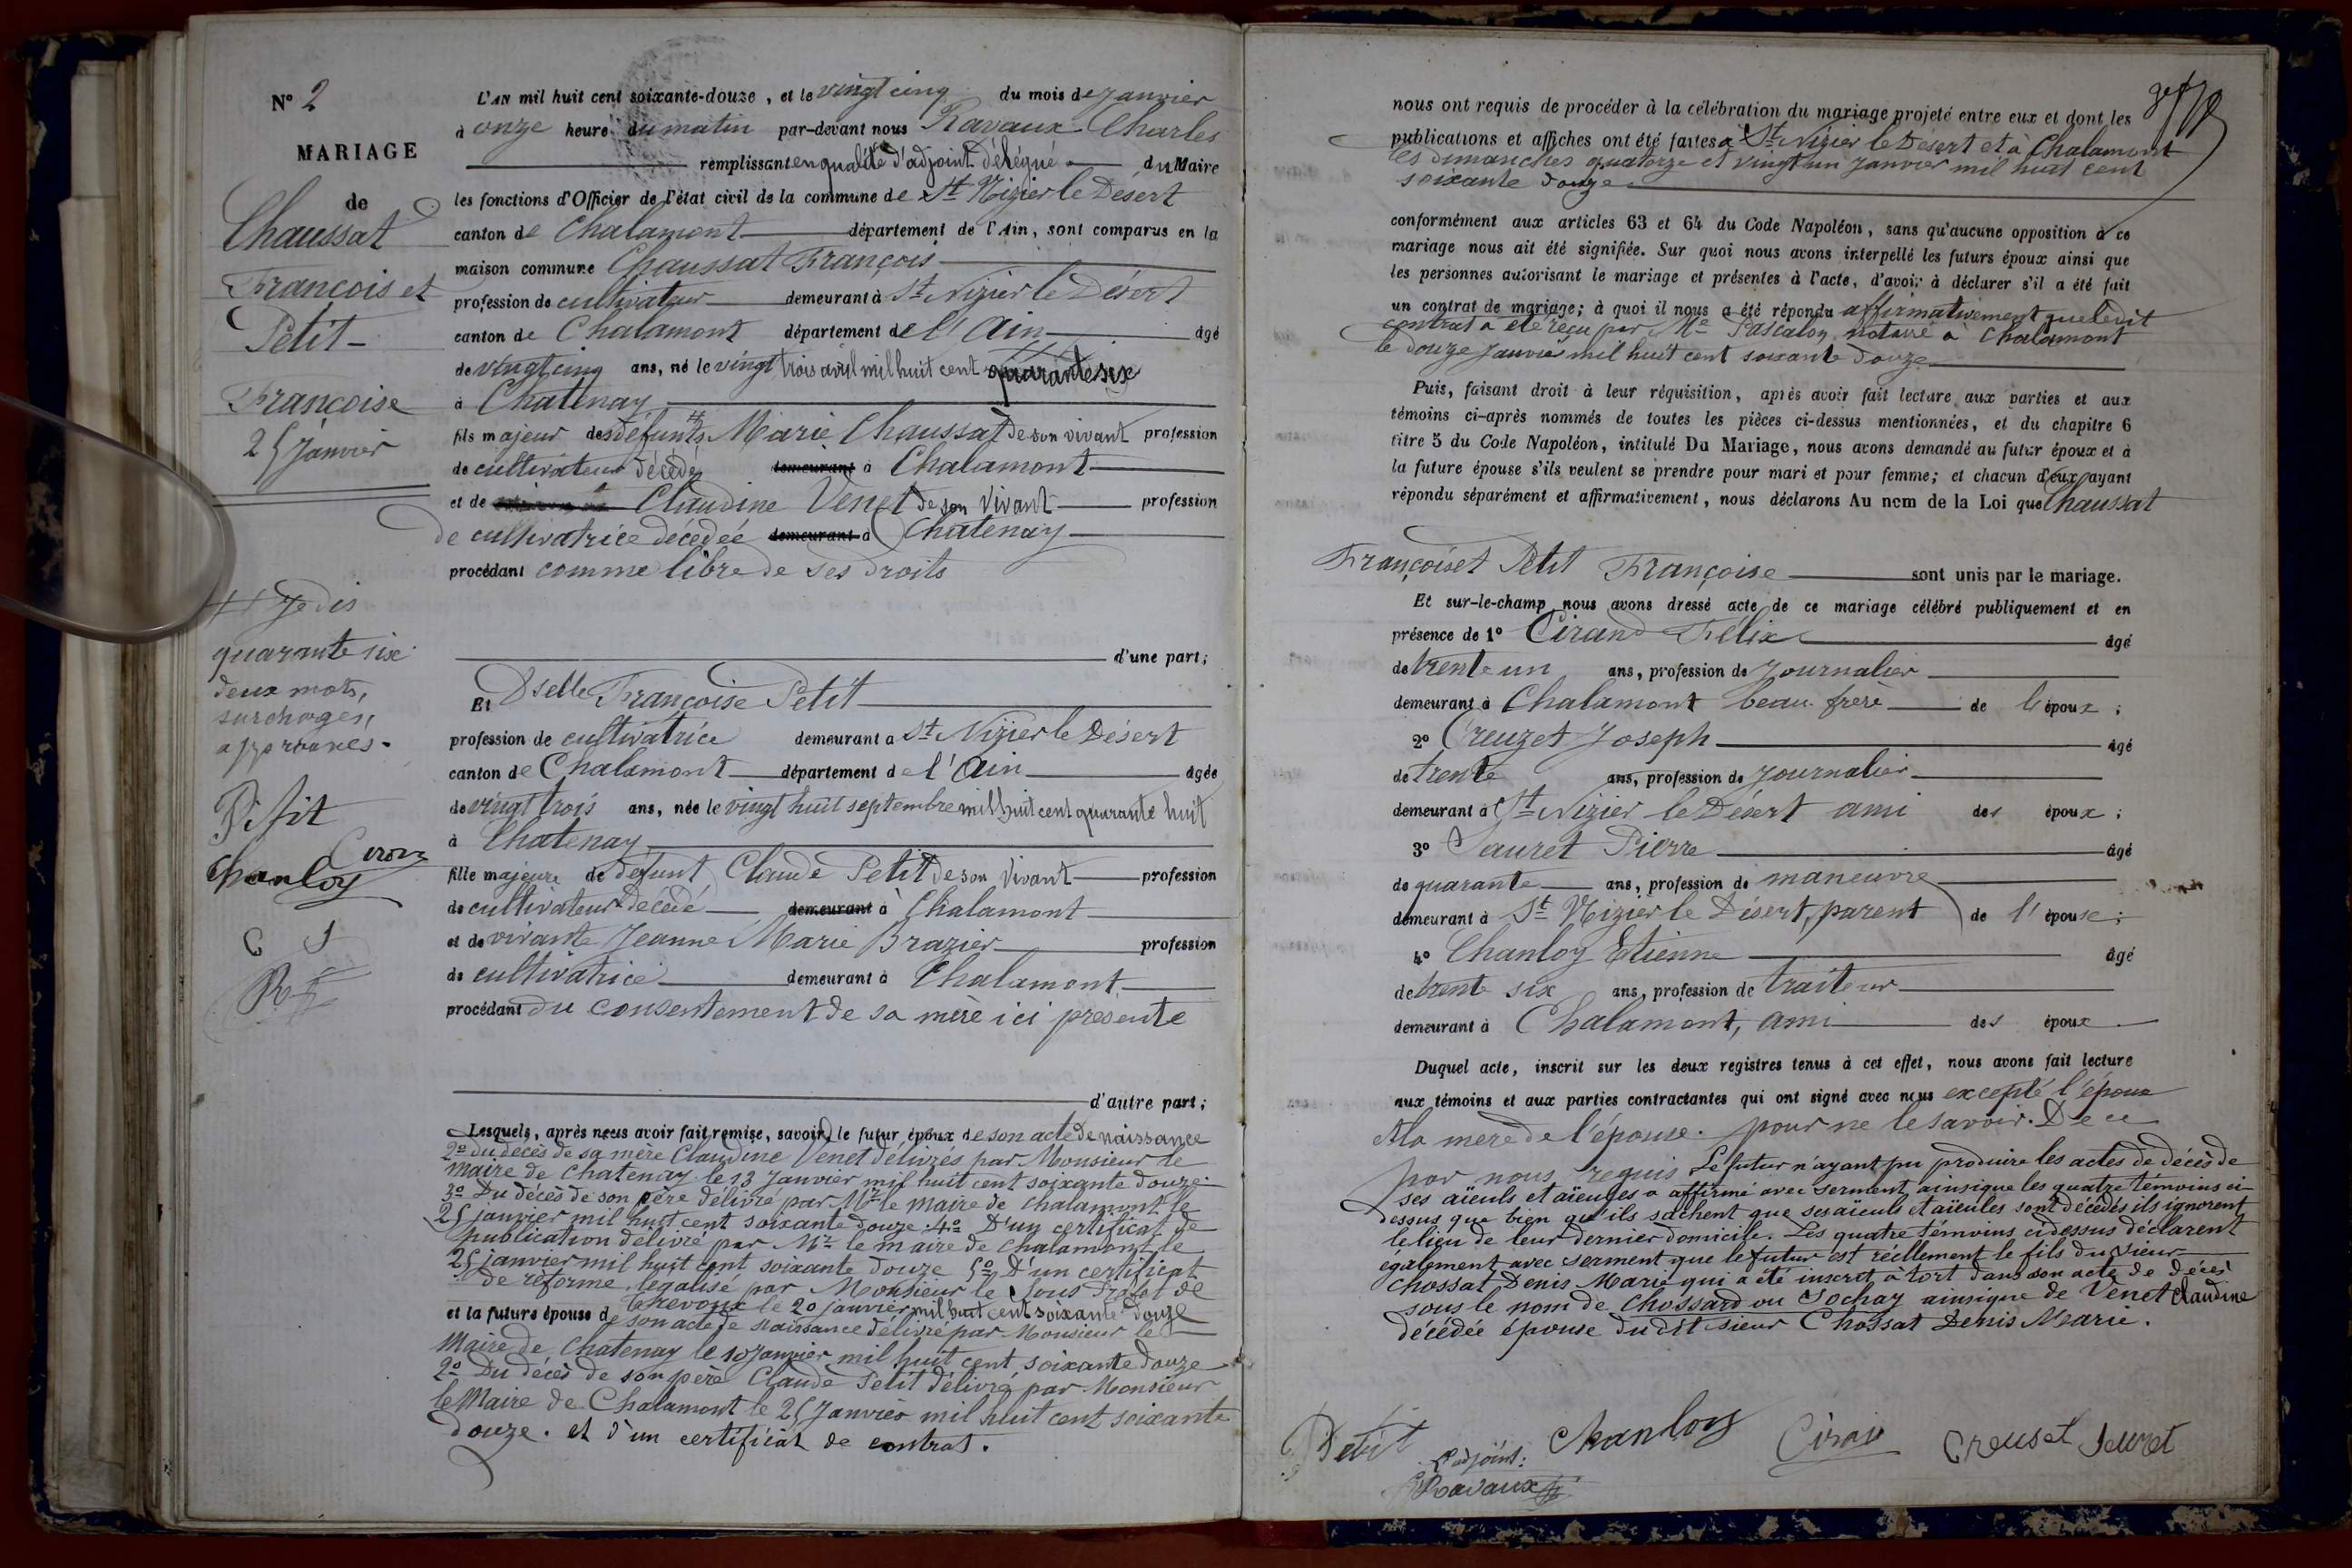 N° 2
MARIAGE
de
Chaussat
François et
Petit
Françoise
25 janvier
Je dis
quarante six
deux mots,
surchargés,
approuvés.
Petit
Ciran
Chanloy
C J
R
L'AN mil huit cent soixante-douze, et le vingt cinq du mois de janvier
à onze heure du matin par-devant nous Ravaux Charles
remplissant en qualité d'adjoint délégué du Maire
les fonctions d'Officier de l'état civil de la commune de St Nizier le Désert
canton de Chalamont département de l'Ain, sont comparus en la
maison commune Chaussat François
profession de cultivateur demeurant à St Nizier le Désert
canton de Chalamont département de l'Ain âgé
de vingt cinq ans, né le vingt trois avril mil huit cent quarante six
à Chatenay
fils majeur des défunts Marie Chaussat de son vivant profession
de cultivateur décédé demeurant à Chalamont
et de Claudine Venet de son vivant profession
de cultivatrice décédée demeurant à Chatenay
procédant comme libre de ses droits
d'une part;
Et Dselle Françoise Petit
profession de cultivatrice demeurant à St Nizier le Désert
canton de Chalamont département de l'Ain âgée
de vingt trois ans, née le vingt huit septembre mil huit cent quarante huit
à Chatenay
fille majeure de défunt Claude Petit de son vivant profession
de cultivateur décédé demeurant à Chalamont
et de vivante Jeanne Marie Brazier profession
de cultivatrice demeurant à Chalamont
procédant du consentement de sa mère ici présente
d'autre part;
Lesquels, après nous avoir fait remise, savoir, le futur époux de son acte de naissance
2° du décès de sa mère Claudine Venet délivrés par Monsieur le
maire de Chatenay le 13 Janvier mil huit cent soixante douze.
3° Du décès de son père délivré par Mr le Maire de Chalamont le
25 janvier mil huit cent soixante douze. 4° D'un certificat de
publication délivré par Mr le maire de Chalamont le
25 janvier mil huit cent soixante douze 5° D'un certificat
de réforme légalisé par Monsieur le Sous Préfet de
Trevoux le 20 janvier mil huit cent soixante douze
et la future épouse de son acte de naissance délivré par Monsieur le
Maire de Chatenay le 10 janvier mil huit cent soixante douze
2° Du décès de son père Claude Petit délivré par Monsieur
le Maire de Chalamont le 25 Janvier mil huit cent soixante
douze. et d'un certificat de contrat.
nous ont requis de procéder à la célébration du mariage projeté entre eux et dont les
publications et affiches ont été faites à St Nizier le Désert et à Chalamont
les dimanches quatorze et vingt un janvier mil huit cent
soixante douze
conformément aux articles 63 et 64 du Code Napoléon, sans qu'aucune opposition à ce
mariage nous ait été signifiée. Sur quoi nous avons interpellé les futurs époux ainsi que
les personnes autorisant le mariage et présentes à l'acte, d'avoir à déclarer s'il a été fait
un contrat de mariage; à quoi il nous a été répondu affirmativement que ledit
contrat a été reçu par Me Pascalon notaire à Chalamont
le douze janvier mil huit cent soixante douze
Puis, faisant droit à leur réquisition, après avoir fait lecture aux parties et aux
témoins ci-après nommés de toutes les pièces ci-dessus mentionnées, et du chapitre 6
titre 5 du Code Napoléon, intitulé Du Mariage, nous avons demandé au futur époux et à
la future épouse s'ils veulent se prendre pour mari et pour femme; et chacun d'eux ayant
répondu séparément et affirmativement, nous déclarons Au nom de la Loi que Chaussat
François et Petit Françoise sont unis par le mariage.
Et sur-le-champ nous avons dressé acte de ce mariage célébré publiquement et en
présence de 1° Cirand Félix âgé
de trente un ans, profession de journalier
demeurant à Chalamont beau frère de l'époux;
2° Creuzet Joseph âgé
de trente ans, profession de journalier
demeurant à St Nizier le Désert ami des époux;
3° Sauret Pierre âgé
de quarante ans, profession de maneuvre
demeurant à St Nizier le Désert, parent de l'épouse;
4° Chanloy Etienne âgé
de trente six ans, profession de traiteur
demeurant à Chalamont, ami des époux
Duquel acte, inscrit sur les deux registres tenus à cet effet, nous avons fait lecture
aux témoins et aux parties contractantes qui ont signé avec nous excepté l'époux
et la mère de l'épouse. pour ne le savoir. De ce
par nous requis Le futur n'ayant pu produire les actes de décès de
ses aïeuls et aïeules a affirmé avec serment ainsi que les quatre témoins ci-
dessus que bien qu'ils sachent que ses aïeuls et aïeules sont décédés ils ignorent
le lieu de leur dernier domicile. Les quatre témoins ci dessus déclarent
également avec serment que le futur est réellement le fils du sieur
Chossat Denis Marie qui a été inscrit à tort dans son acte de décès
sous le nom de Chossard ou Sochay ainsi que de Venet Claudine
décédée épouse du dit sieur Chossat Denis Marie.
Petit
L'adjoint:
Ravaux
Chanloy
Ciran
Creuset
Seuret